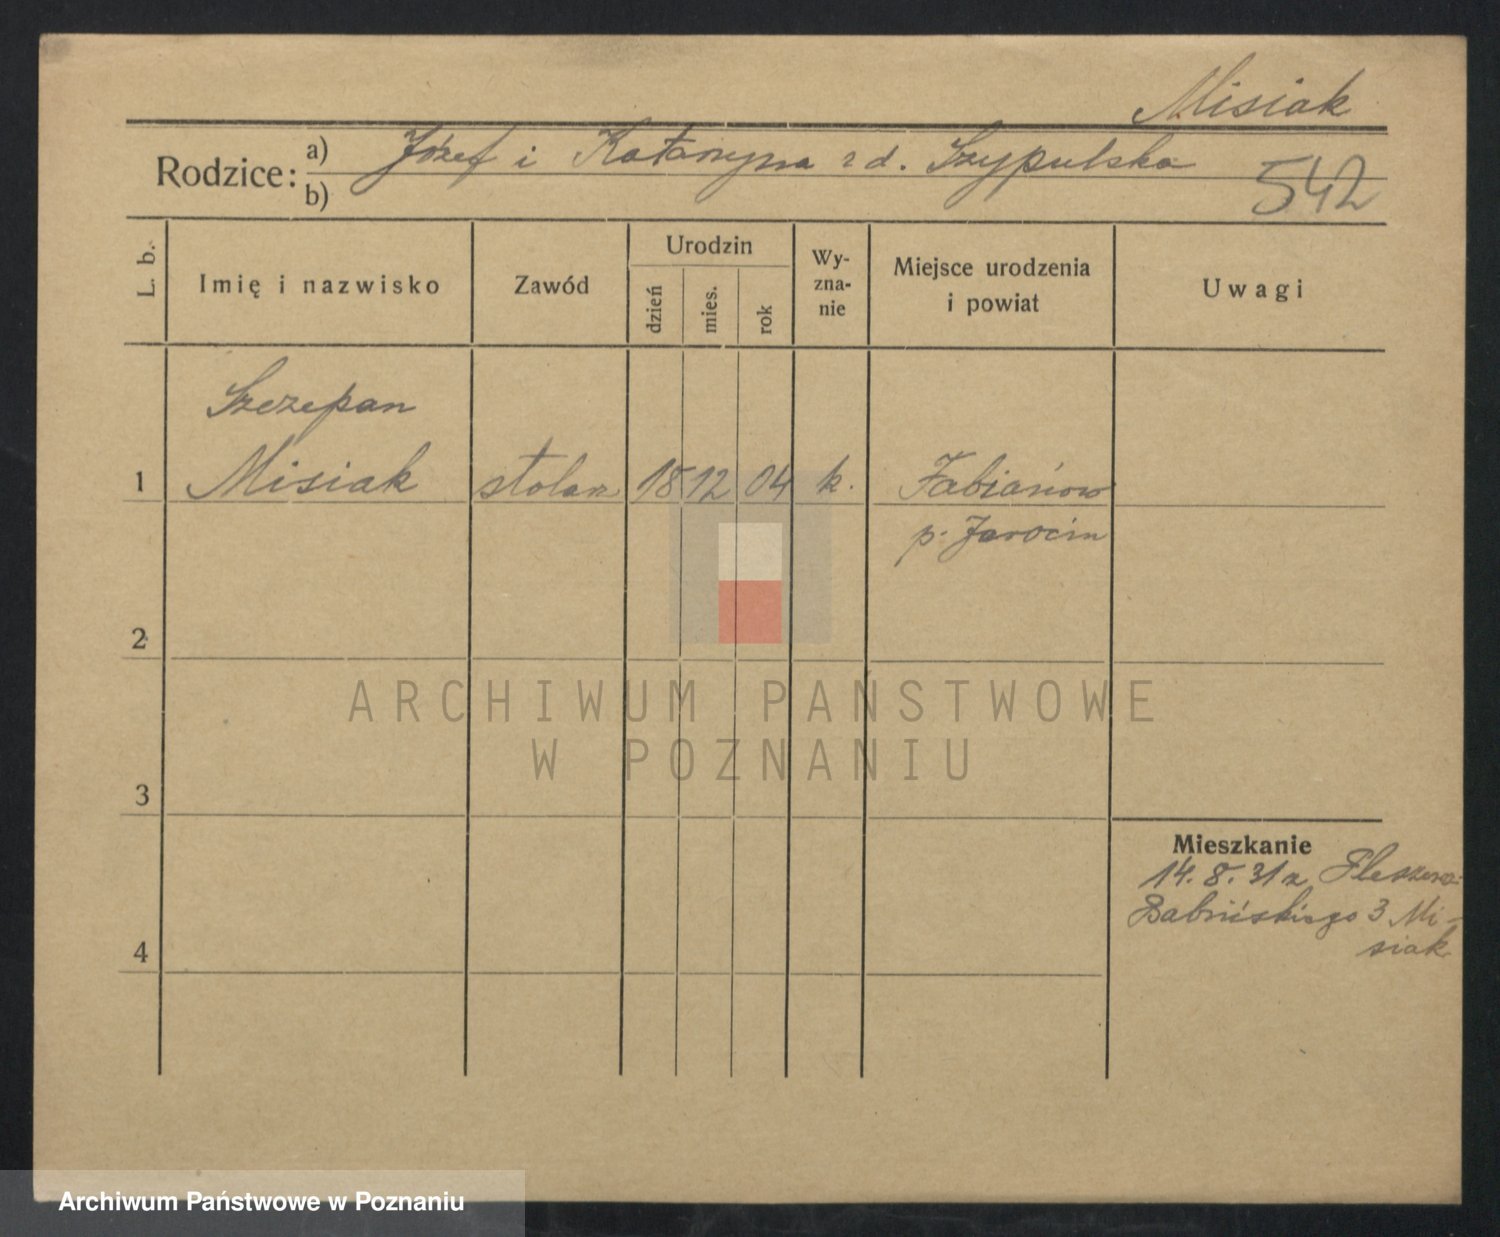 Misiak
Rodzice: a) Józef i Katarzyna z d. Szypulska
b)
542
L. b.
Imię i nazwisko
Zawód
Urodzin
dzień
mies.
rok
Wy-
zna-
nie
Miejsce urodzenia
i powiat
Uwagi
Szczepan
1 Misiak stolarz 18 12 04 k. Fabianów
p. Jarocin
2
ARCHIWUM PAŃSTWOWE
W POZNANIU
3
Mieszkanie
14. 8. 31 z
3 Mi-
siak
4
Archiwum Państwowe w Poznaniu